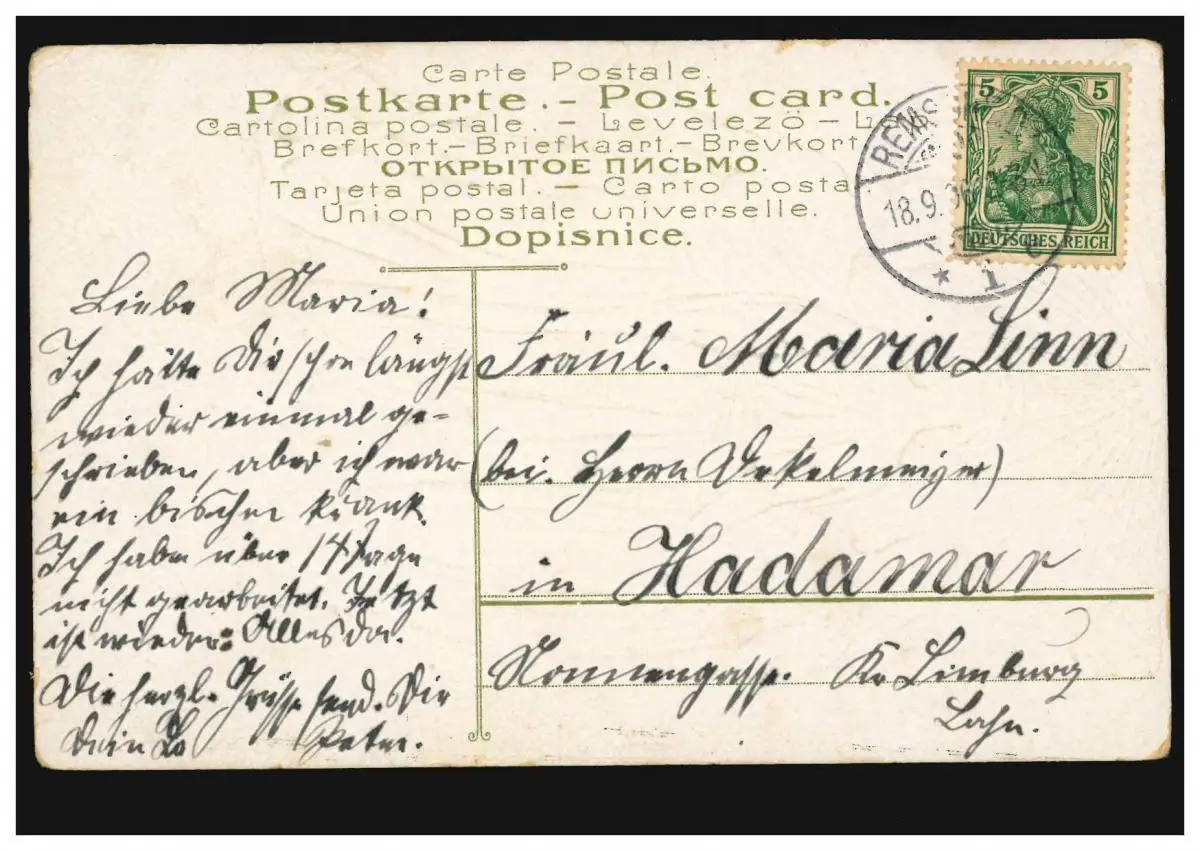 Carte Postale.
Postkarte. - Post card.
Cartolina postale. - Levelezö - L
Brefkort. - Briefkaart. - Brevkort
ОТКРЫТОЕ ПИСЬМО.
Tarjeta postal. - Carto posta
Union postale universelle.
Dopisnice.
5 5
DEUTSCHES REICH
REMS
18.9.
* 1
Liebe Maria!
Ich hätte Dir schon längst
wieder einmal ge-
schrieben, aber ich war
ein bischen krank.
Ich habe über 14 Tage
nicht gearbeitet. Jetzt
ist wieder Alles da.
Die herzl. Grüsse send. Dir
Dein Peter.
Fräul. Maria Linn
(bei Herrn Dekelmeiger)
in Hadamar
Nonnengasse. Kr Limburg
Lahn.